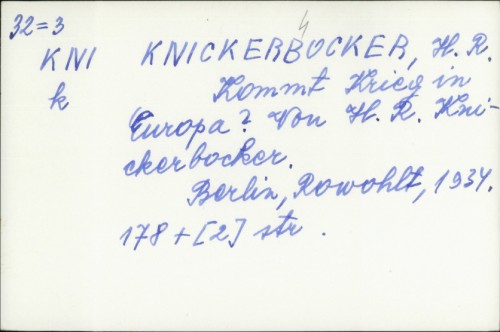 4
32=3
KNI KNICKERBOCKER, H. R.
k Kommt Krieg in
Europa? Von H. R. Kni-
ckerbocker.
Berlin, Rowohlt, 1934.
178 + [2] str.